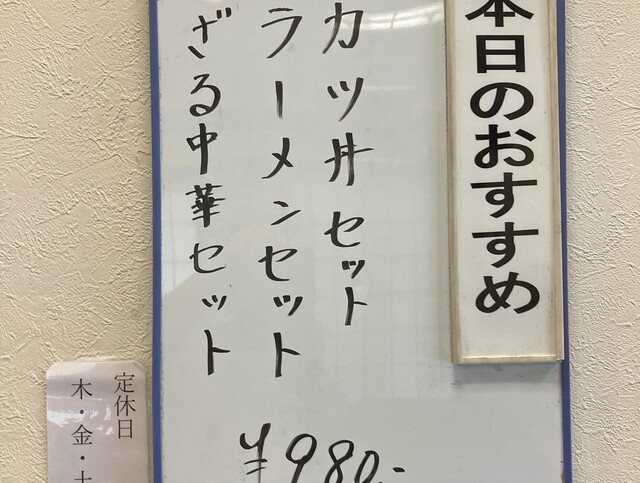 本日のおすすめ
カツ丼セット
ラーメンセット
ざる中華セット
¥980.-
定休日
木・金・土